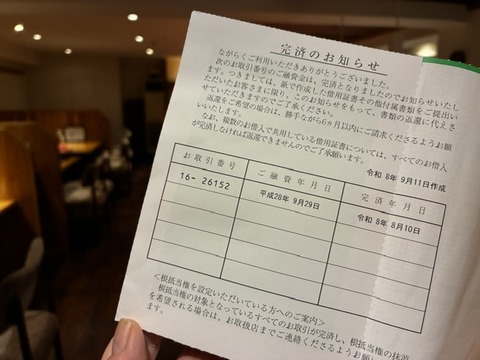 完済のお知らせ
ながらくご利用いただきありがとうございました。
次のお取引番号のご融資金は、完済となりましたのでお知らせいたし
ます。つきましては、紙で作成した借用証書その他付属書類をご提出い
ただいたお客さまに限り、このお知らせをもって、書類の返還に代えさ
せていただきますのでご了承ください。
返還をご希望の場合は、勝手ながら6ヵ月以内にご請求くださるようお願
いいたします。
なお、複数のお借入で共用している借用証書については、すべてのお借入
が完済しなければ返還できませんのでご了承願います。
令和 8年 9月11日作成
お取引番号 ご融資年月日 完済年月日
16- 26152 平成28年 9月29日 令和 8年 8月10日
<根抵当権を設定いただいている方へのご案内>
根抵当権の対象となっているすべてのお取引が完済し、根抵当権の抹消
を希望される場合は、お取扱店までご連絡くださるようお願
ます。